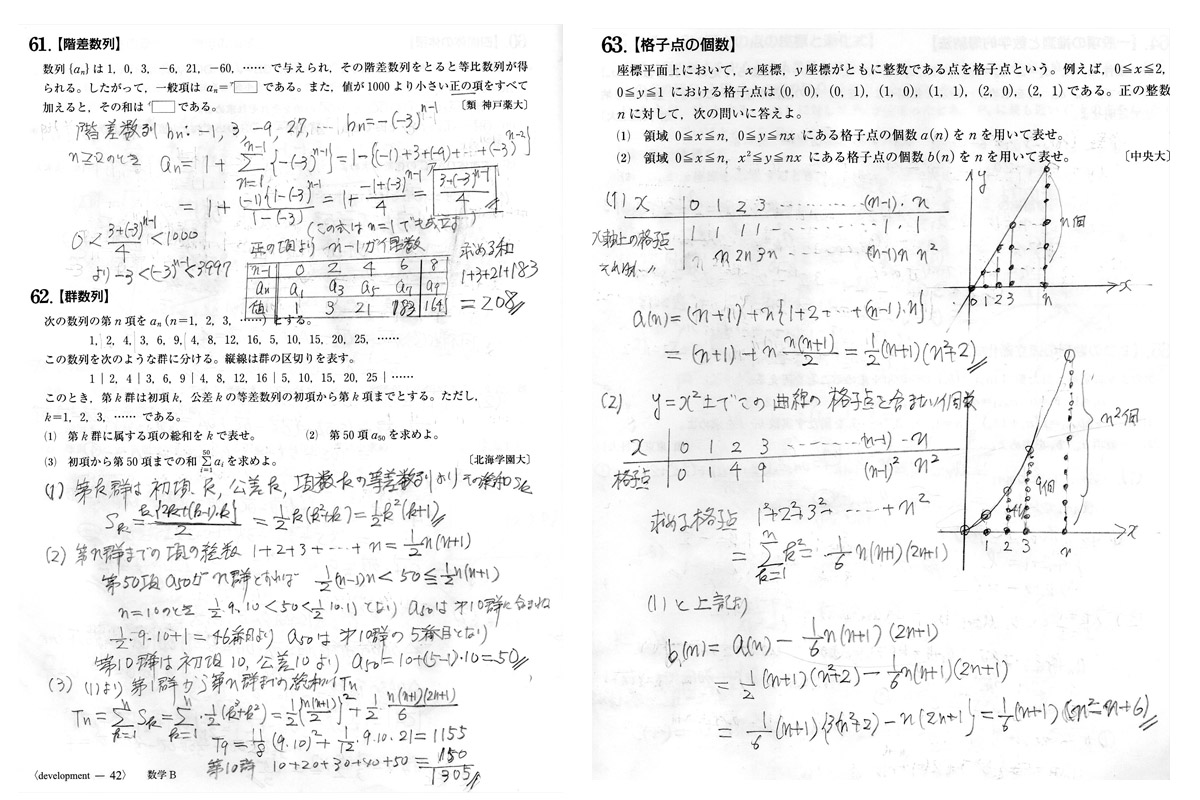 61.【階差数列】
数列{aₙ}は1, 0, 3, −6, 21, −60, …… で与えられ, その階差数列をとると等比数列が得
られる。したがって, 一般項は aₙ=ア□ である。また, 値が1000より小さい正の項をすべて
加えると, その和は イ□ である。 〔類 神戸薬大〕
階差数列 bₙ: −1, 3, −9, 27, … bₙ=−(−3)ⁿ⁻¹
n≧2のとき aₙ = 1+Σ_{n=1}^{n−1}{−(−3)ⁿ⁻¹} = 1−{(−1)+3+(−9)+…+(−3)ⁿ⁻²}
= 1+ (−1){1−(−3)ⁿ⁻¹}/1−(−3) = 1+ −1+(−3)ⁿ⁻¹/4 = 3+(−3)ⁿ⁻¹/4
(この式は n=1でも成立す)
0< 3+(−3)ⁿ⁻¹/4 <1000
より −3<(−3)ⁿ⁻¹<3997
正の項より n−1が偶数
n−1 0 2 4 6 8
aₙ a₁ a₃ a₅ a₇ a₉
値 1 3 21 183 164
求める和
1+3+21+183
=208
62.【群数列】
次の数列の第n項をaₙ(n=1, 2, 3, ……)とする。
1, 2, 4, 3, 6, 9, 4, 8, 12, 16, 5, 10, 15, 20, 25, ……
この数列を次のような群に分ける。縦線は群の区切りを表す。
1 | 2, 4 | 3, 6, 9 | 4, 8, 12, 16 | 5, 10, 15, 20, 25 | ……
このとき, 第k群は初項k, 公差kの等差数列の初項から第k項までとする。ただし,
k=1, 2, 3, …… である。
(1) 第k群に属する項の総和をkで表せ。 (2) 第50項 a₅₀ を求めよ。
(3) 初項から第50項までの和 Σ_{i=1}^{50} aᵢ を求めよ。 〔北海学園大〕
(1) 第k群は初項k, 公差k, 項数kの等差数列よりその総和Sₖ
Sₖ= k{2k+(k−1)k}/2 = ½k(k²+k)=½k²(k+1)
(2) 第n群までの項の総数 1+2+3+…+n=½n(n+1)
第50項a₅₀が n群とすれば ½(n−1)n<50≦½n(n+1)
n=10のとき ½·9·10<50<½10·11となり a₅₀は第10群に含まれる
½·9·10+1=46番目より a₅₀は第10群の5番目となり
第10群は初項10, 公差10より a₅₀=10+(5−1)·10=50
(3) (1)より 第1群から第n群までの総和は Tₙ
Tₙ=Σ_{k=1}^{n} Sₖ=Σ_{k=1}^{n}·½(k³+k²)=½{n(n+1)/2}²+½·n(n+1)(2n+1)/6
T₉=⅛(9·10)²+1/12·9·10·21= 1155
第10群 10+20+30+40+50= 150
1305
〈development — 42〉 数学B
63.【格子点の個数】
座標平面上において, x座標, y座標がともに整数である点を格子点という。例えば, 0≦x≦2,
0≦y≦1 における格子点は (0, 0), (0, 1), (1, 0), (1, 1), (2, 0), (2, 1) である。正の整数
nに対して, 次の問いに答えよ。
(1) 領域 0≦x≦n, 0≦y≦nx にある格子点の個数a(n)をnを用いて表せ。
(2) 領域 0≦x≦n, x²≦y≦nx にある格子点の個数b(n)をnを用いて表せ。 〔中央大〕
(1) x 0 1 2 3 ……… (n−1)· n
x軸上の格子点 1 1 1 1 ……… 1 · 1
それ以外〃 n 2n 3n ……… (n−1)n n²
y
n個
0 1 2 3 n x
a(n)=(n+1)+n{1+2+…+(n−1)·n}
=(n+1)+n n(n+1)/2=½(n+1)(n²+2)
(2) y=x²上での曲線の格子点を含まない個数
x 0 1 2 3 ……… (n−1) − n
格子点 0 1 4 9 (n−1)² n²
n²個
9個
4個
1 2 3 n x
求める格子点 1²+2²+3²+……+n²
=Σ_{k=1}^{n} k²= 1/6 n(n+1)(2n+1)
(1)と上記より
b(n)= a(n)− 1/6 n(n+1)(2n+1)
=½(n+1)(n²+2)−1/6 n(n+1)(2n+1)
=1/6(n+1){3(n²+2)−n(2n+1)}=1/6(n+1)(n²−n+6)